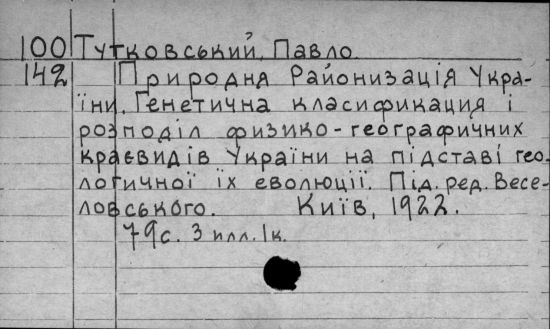 100 Тутковський, Павло.
142 Природня Районизація Укра-
їни. Генетична класификация і
розподіл физико-географичних
краєвидів України на підставі гео-
логичної їх еволюції. Під. ред. Весе-
ловського. Київ, 1922.
79с. 3 илл. 1к.